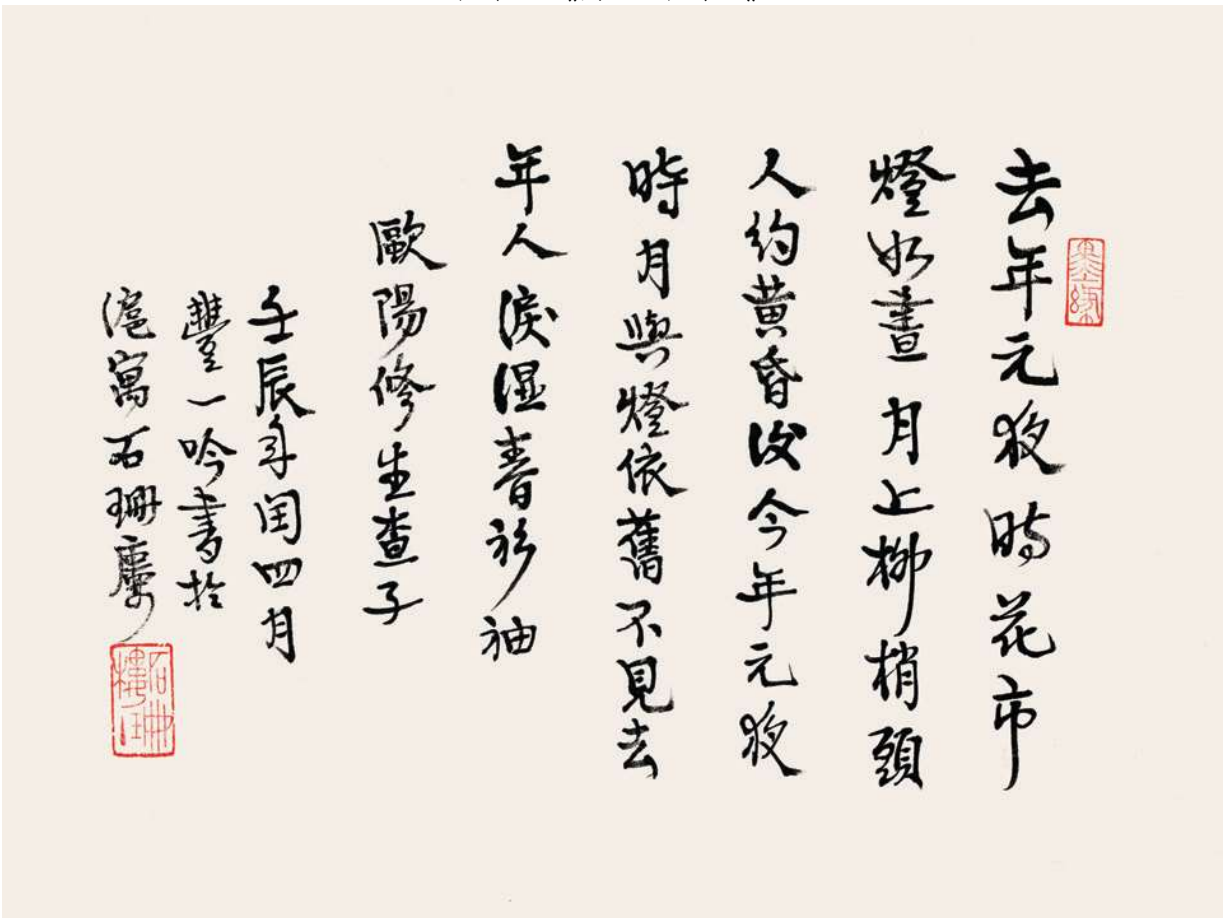 去年元夜時花市
燈如晝月上柳梢頭
人約黄昏後今年元夜
時月與燈依舊不見去
年人淚濕春衫袖
歐陽修生查子
壬辰年閏四月
豐一吟書於
滬寓石珊廔
墨緣
石珊樓